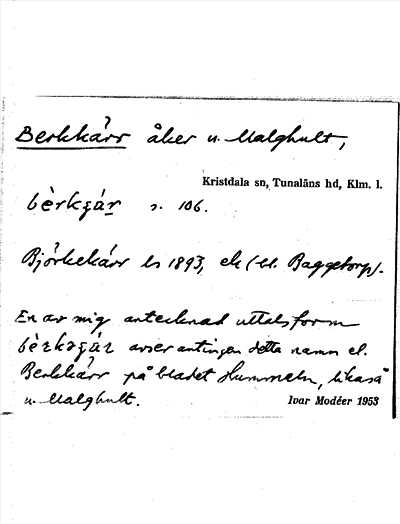 Berkkärr åker u. Malghult,
Kristdala sn, Tunaläns hd, Klm. l.
bèrkʒár s. 106.
Björkekärr ls 1893, ek (bl. Baggetorp).
En av mig antecknad uttalsform
bèrkəʒár avser antingen detta namn el.
Berkkärr på bladet Hummeln, likaså
u. Malghult.
Ivar Modéer 1953